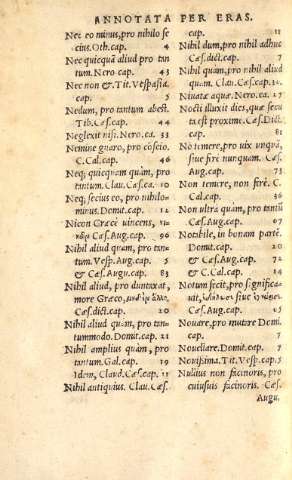 ANNOTATA PER ERAS.
Nec eo minus, pro nihilo se
cius. Oth. cap. 4
Nec quicquã aliud pro tan
tum. Nero cap. 43
Nec non &. Tit. Vespasia.
cap. 5
Nedum, pro tantum abest.
Tib. Cæs. cap. 44
Neglexit nisi. Nero. ca. 33
Nemine gnaro, pro cõscio.
C. Cal. cap. 46
Neq; quicquam quàm, pro
tantum. Clau. Cæs. ca. 10
Neq; secius eo, pro nihilo-
minus. Domit. cap. 12
Nicon Græcè uincens,
Cæs. Aug. cap. 96
Nihil aliud quàm, pro tan
tum. Vesp. Aug. cap. 5
& Cæs. Augu. cap. 83
Nihil aliud, pro duntaxat,
more Græco,
Cæs. dict. cap. 20
Nihil aliud quàm, pro tan
tummodo. Domit. cap. 21
Nihil amplius quàm, pro
tantum. Gal. cap. 19
Idem, Claud. Cæs. cap. 35
Nihil antiquius. Clau. Cæs.
cap. 11
Nihil dum, pro nihil adhuc
Cæs. dict. cap. 7
Nihil quàm, pro nihil aliud
quàm. Clau. Cæs. cap. 17
Niuatæ aquæ. Nero. ca. 27
Nocti illuxit dies, quæ secu
ta est proxime. Cæs. Dict.
cap. 81
No temere, pro uix unquã,
siue ferè nunquam. Cæs.
Aug. cap. 73
Non temere, non ferè. C.
Cal. cap. 36
Non ultra quàm, pro tantũ
Cæs. Aug. cap. 67
Notabile, in bonam partẽ.
Domit. cap. 20
& Cæs. Aug. cap. 72
& C. Cal. cap. 14
Notum fecit, pro significa-
uit, siue
Cæs. Aug. cap. 7
Nouare, pro mutare Domi.
cap. 7
Nouellare. Domit. cap. 7
Nouissima. Tit. Vesp. cap. 5
Nullius non facinoris, pro
cuiusuis facinoris. Cæs.
Augu.